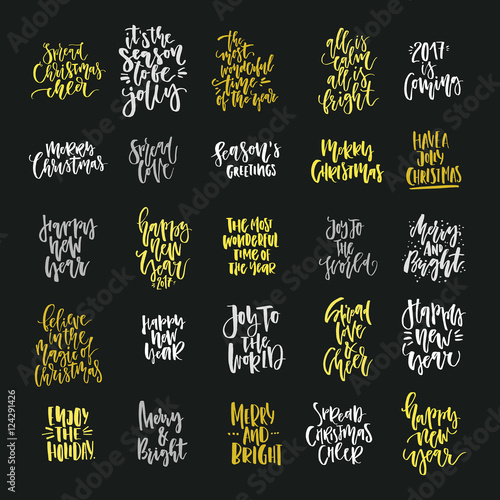 Spread
Christmas
cheer
it's the
season
to be
jolly
the
most
wonderful
time
of the year
all is
calm
all is
bright
2017
is
coming
Merry
Christmas
Spread
love
Season's
GREETINGS
Merry
Christmas
HAVE A
JOLLY
CHRISTMAS
Happy
new
year
happy
new
year
2017
THE MOST
WONDERFUL
TIME OF
THE YEAR
JOY TO
THE
World
Merry
AND
Bright
Believe
in the
magic of
Christmas
Happy
new
year
Joy to
THE
WORLD
Spread
love &
Cheer
Happy
new
year
ENJOY
THE
HOLIDAY
Merry
&
Bright
MERRY
AND
BRIGHT
SPREAD
CHRISTMAS
CHEER
happy
new
year
Adobe Stock | #124291426